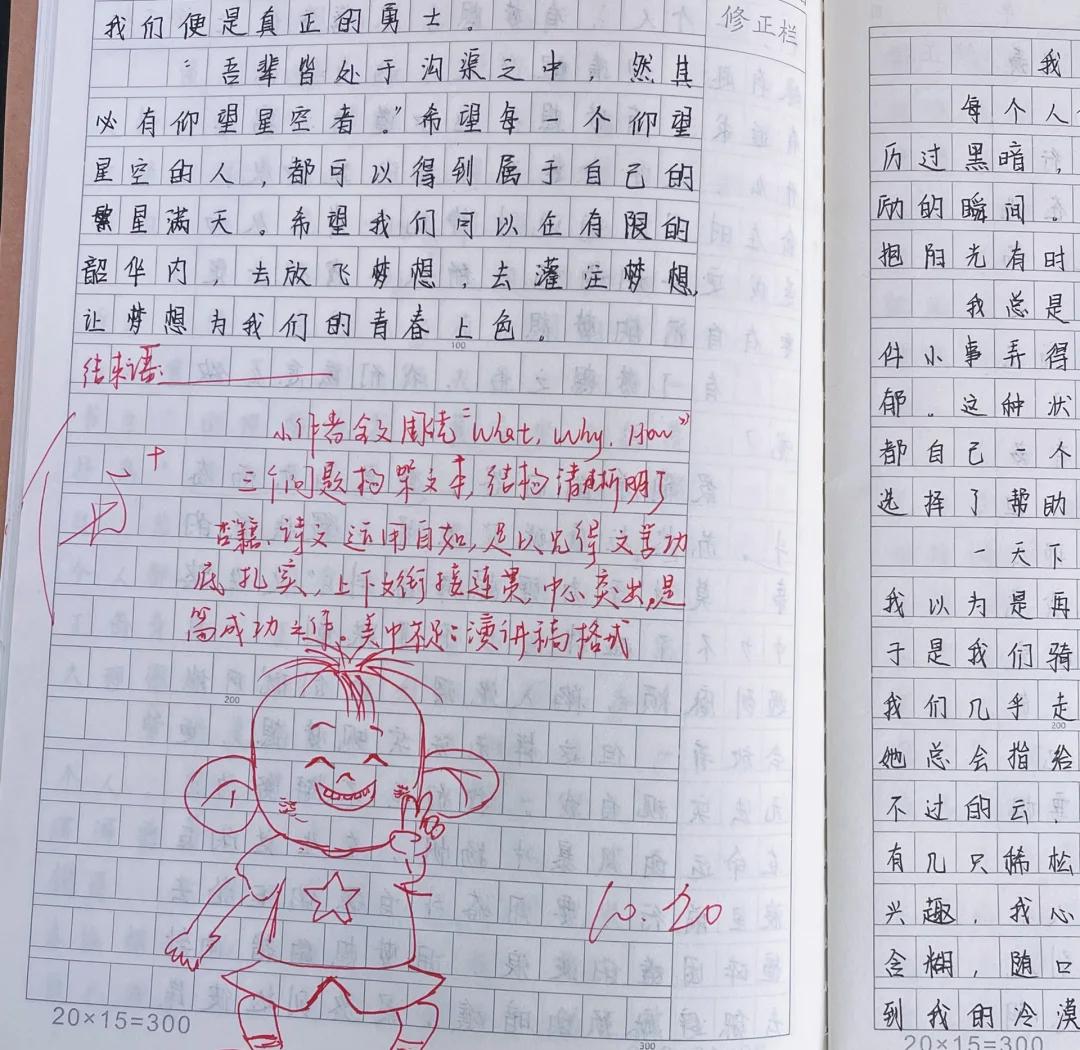 我们便是真正的勇士。
修正栏
“吾辈皆处于沟渠之中，然其
必有仰望星空者。”希望每一个仰望
星空的人，都可以得到属于自己的
繁星满天。希望我们可以在有限的
韶华内，去放飞梦想，去灌注梦想，
让梦想为我们的青春上色。
100
结束语：
小作者全文围绕“What，Why，How”
三个问题构架文本，结构清晰明了
古籍、诗文运用自如，足以见得文学功
底扎实，上下文衔接连贯，中心突出，是
篇成功之作。美中不足：演讲稿格式
200
10.20
20×15=300
300
我
每个人
历过黑暗，
励的瞬间。
抱阳光有时
我总是
件小事弄得
郁。这种状
都自己一个
选择了帮助
一天下
我以为是再
于是我们骑
我们几乎走
200
她总会指给
不过的云，
有几只稀松
兴趣，我心
含糊，随口
到我的冷漠
20×15=300